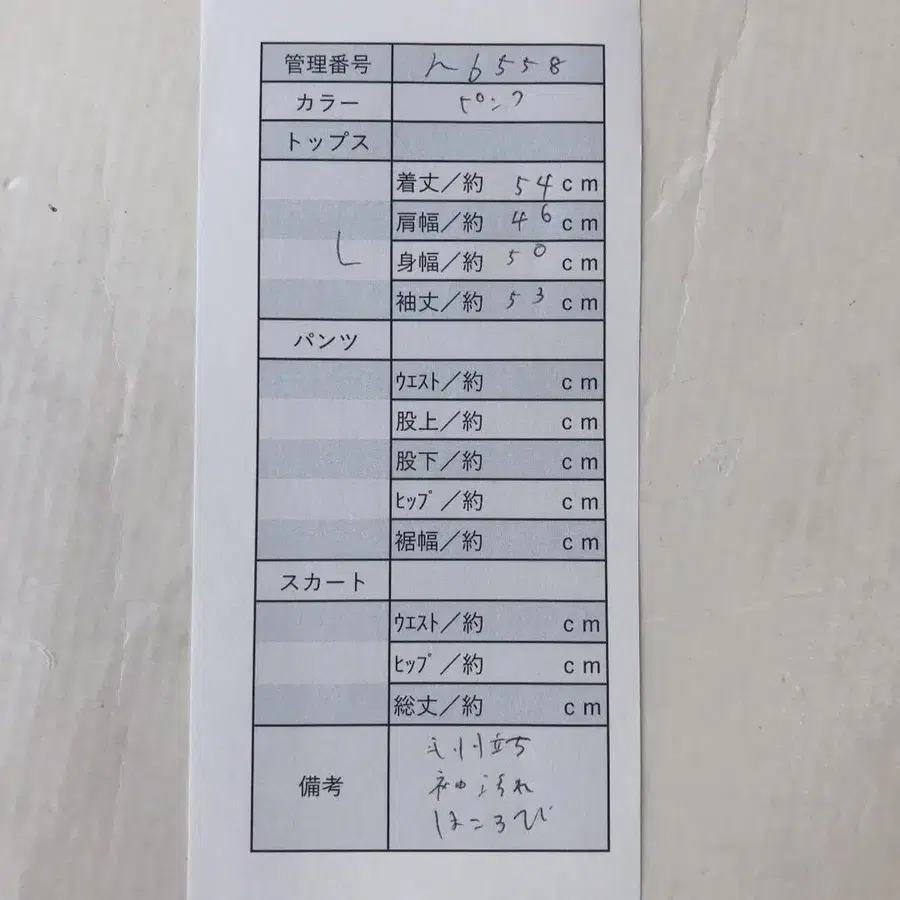 管理番号 h6558
カラー ピンク
トップス
着丈／約 54 cm
肩幅／約 46 cm
L
身幅／約 50 cm
袖丈／約 53 cm
パンツ
ｳｴｽﾄ／約 cm
股上／約 cm
股下／約 cm
ﾋｯﾌﾟ／約 cm
裾幅／約 cm
スカート
ｳｴｽﾄ／約 cm
ﾋｯﾌﾟ／約 cm
総丈／約 cm
備考
毛羽立ち
袖汚れ
ほころび